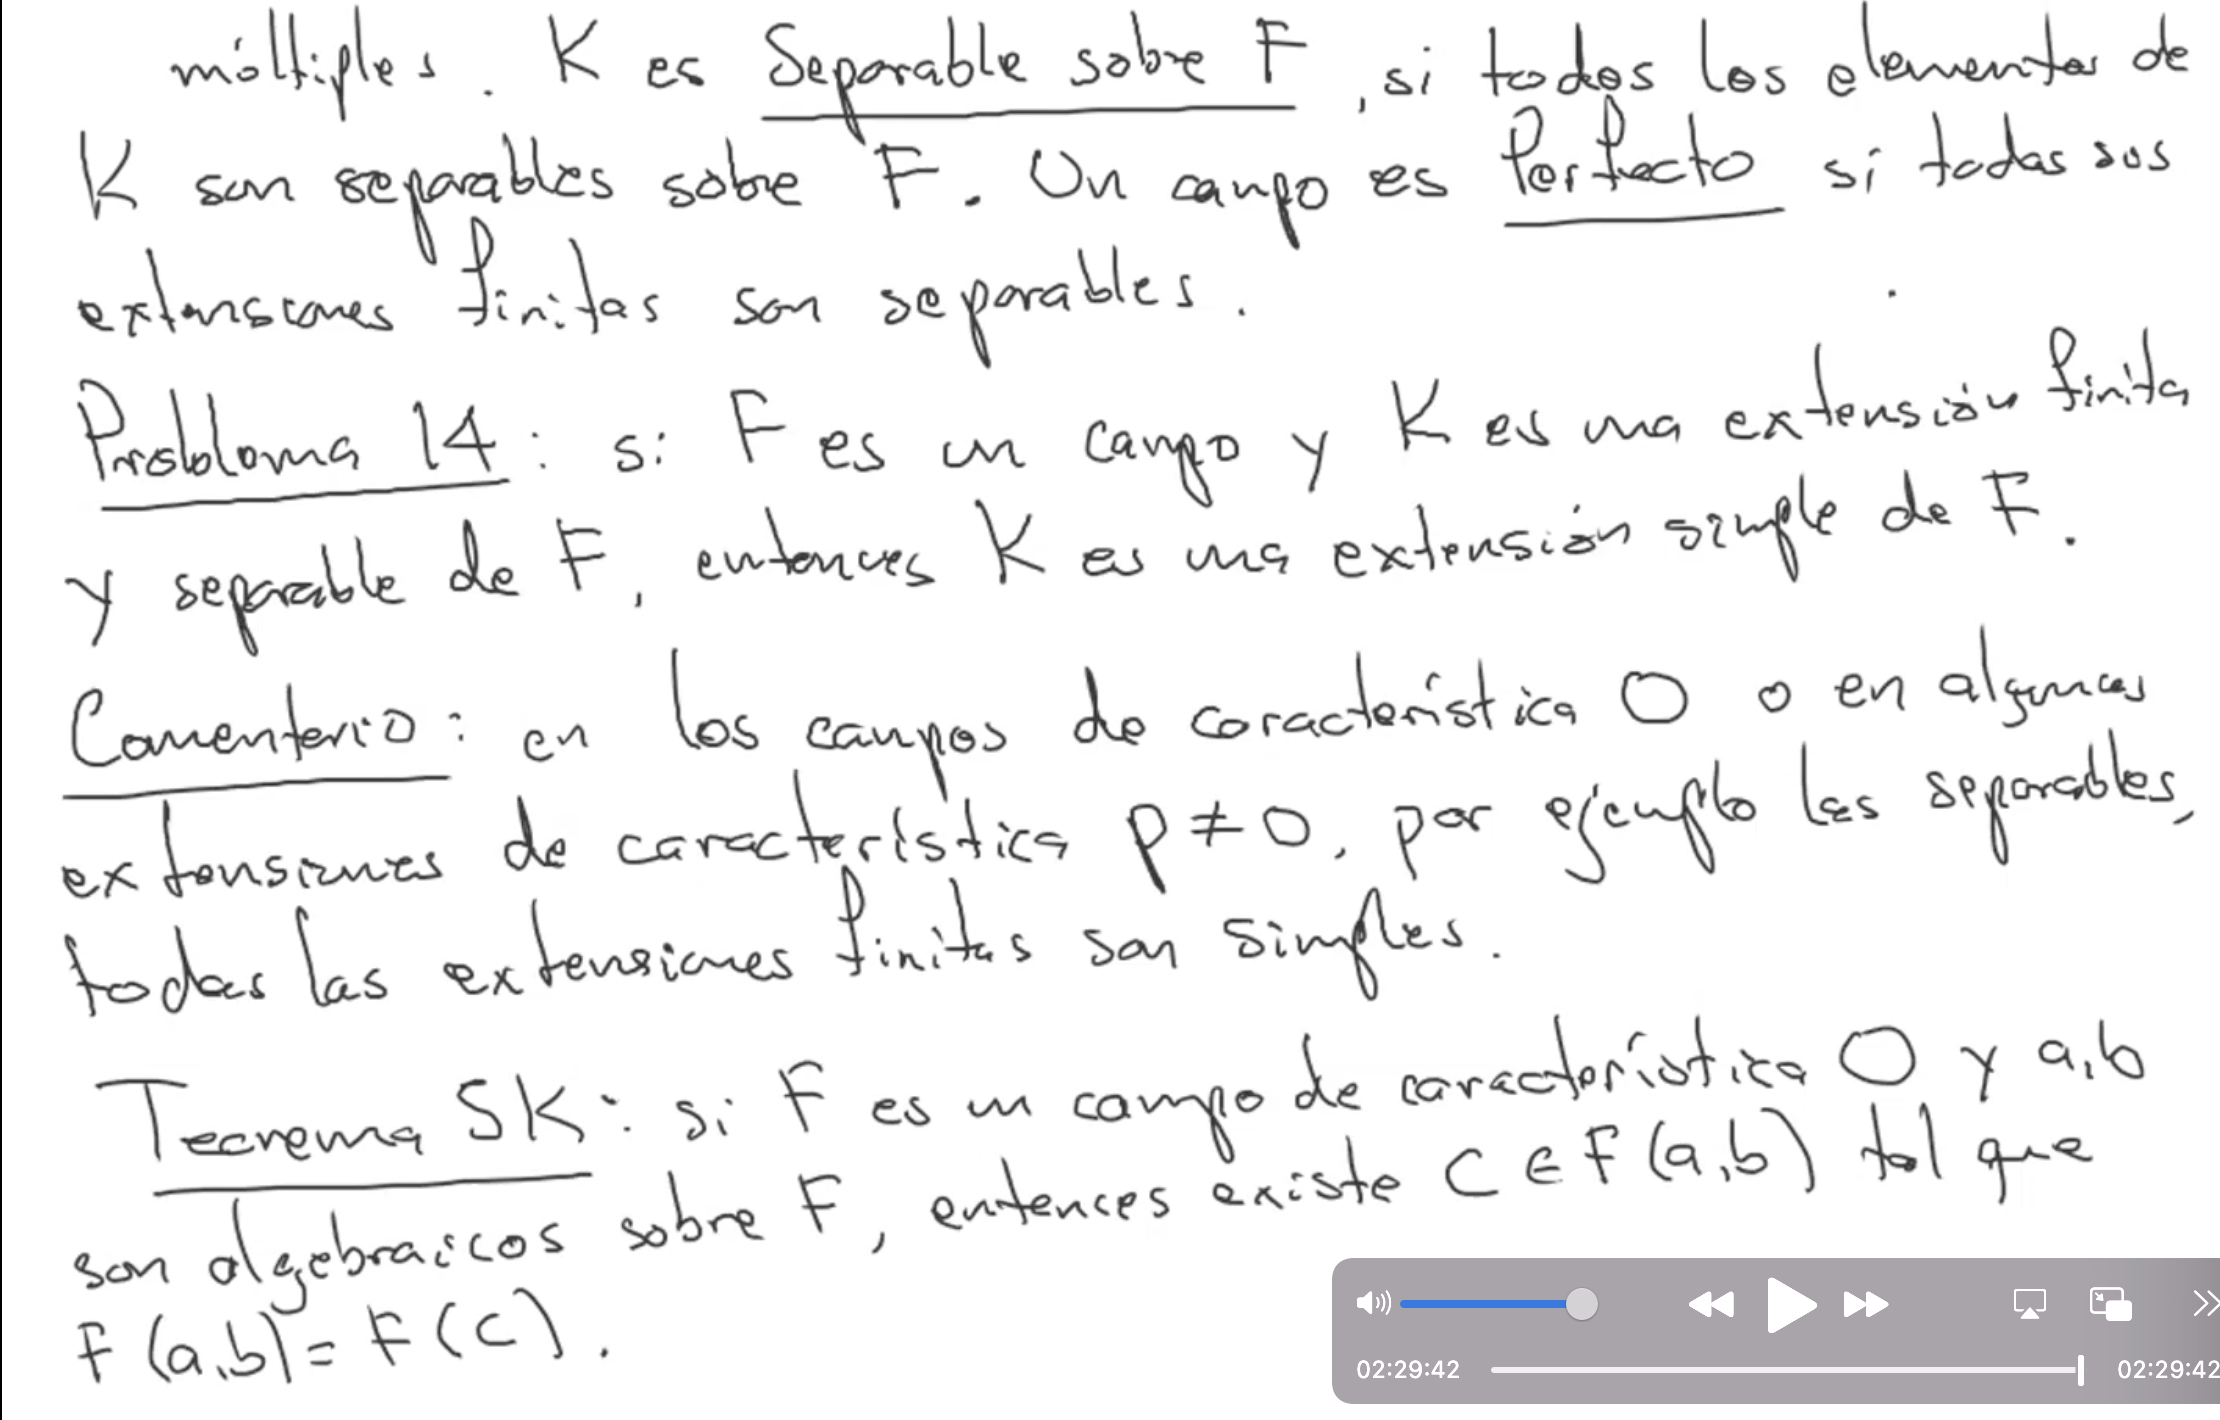 múltiples. K es Separable sobre F, si todos los elementos de
K son separables sobre F. Un campo es Perfecto si todas sus
extensiones finitas son separables.
Problema 14: si F es un campo y K es una extensión finita
y separable de F, entonces K es una extensión simple de F.
Comentario: en los campos de característica 0 o en algunas
extensiones de característica p ≠ 0, por ejemplo las separables,
todas las extensiones finitas son simples.
Teorema 5K: si F es un campo de característica 0 y a,b
son algebraicos sobre F, entonces existe c ∈ F(a,b) tal que
F(a,b) = F(c).
02:29:42 02:29:42